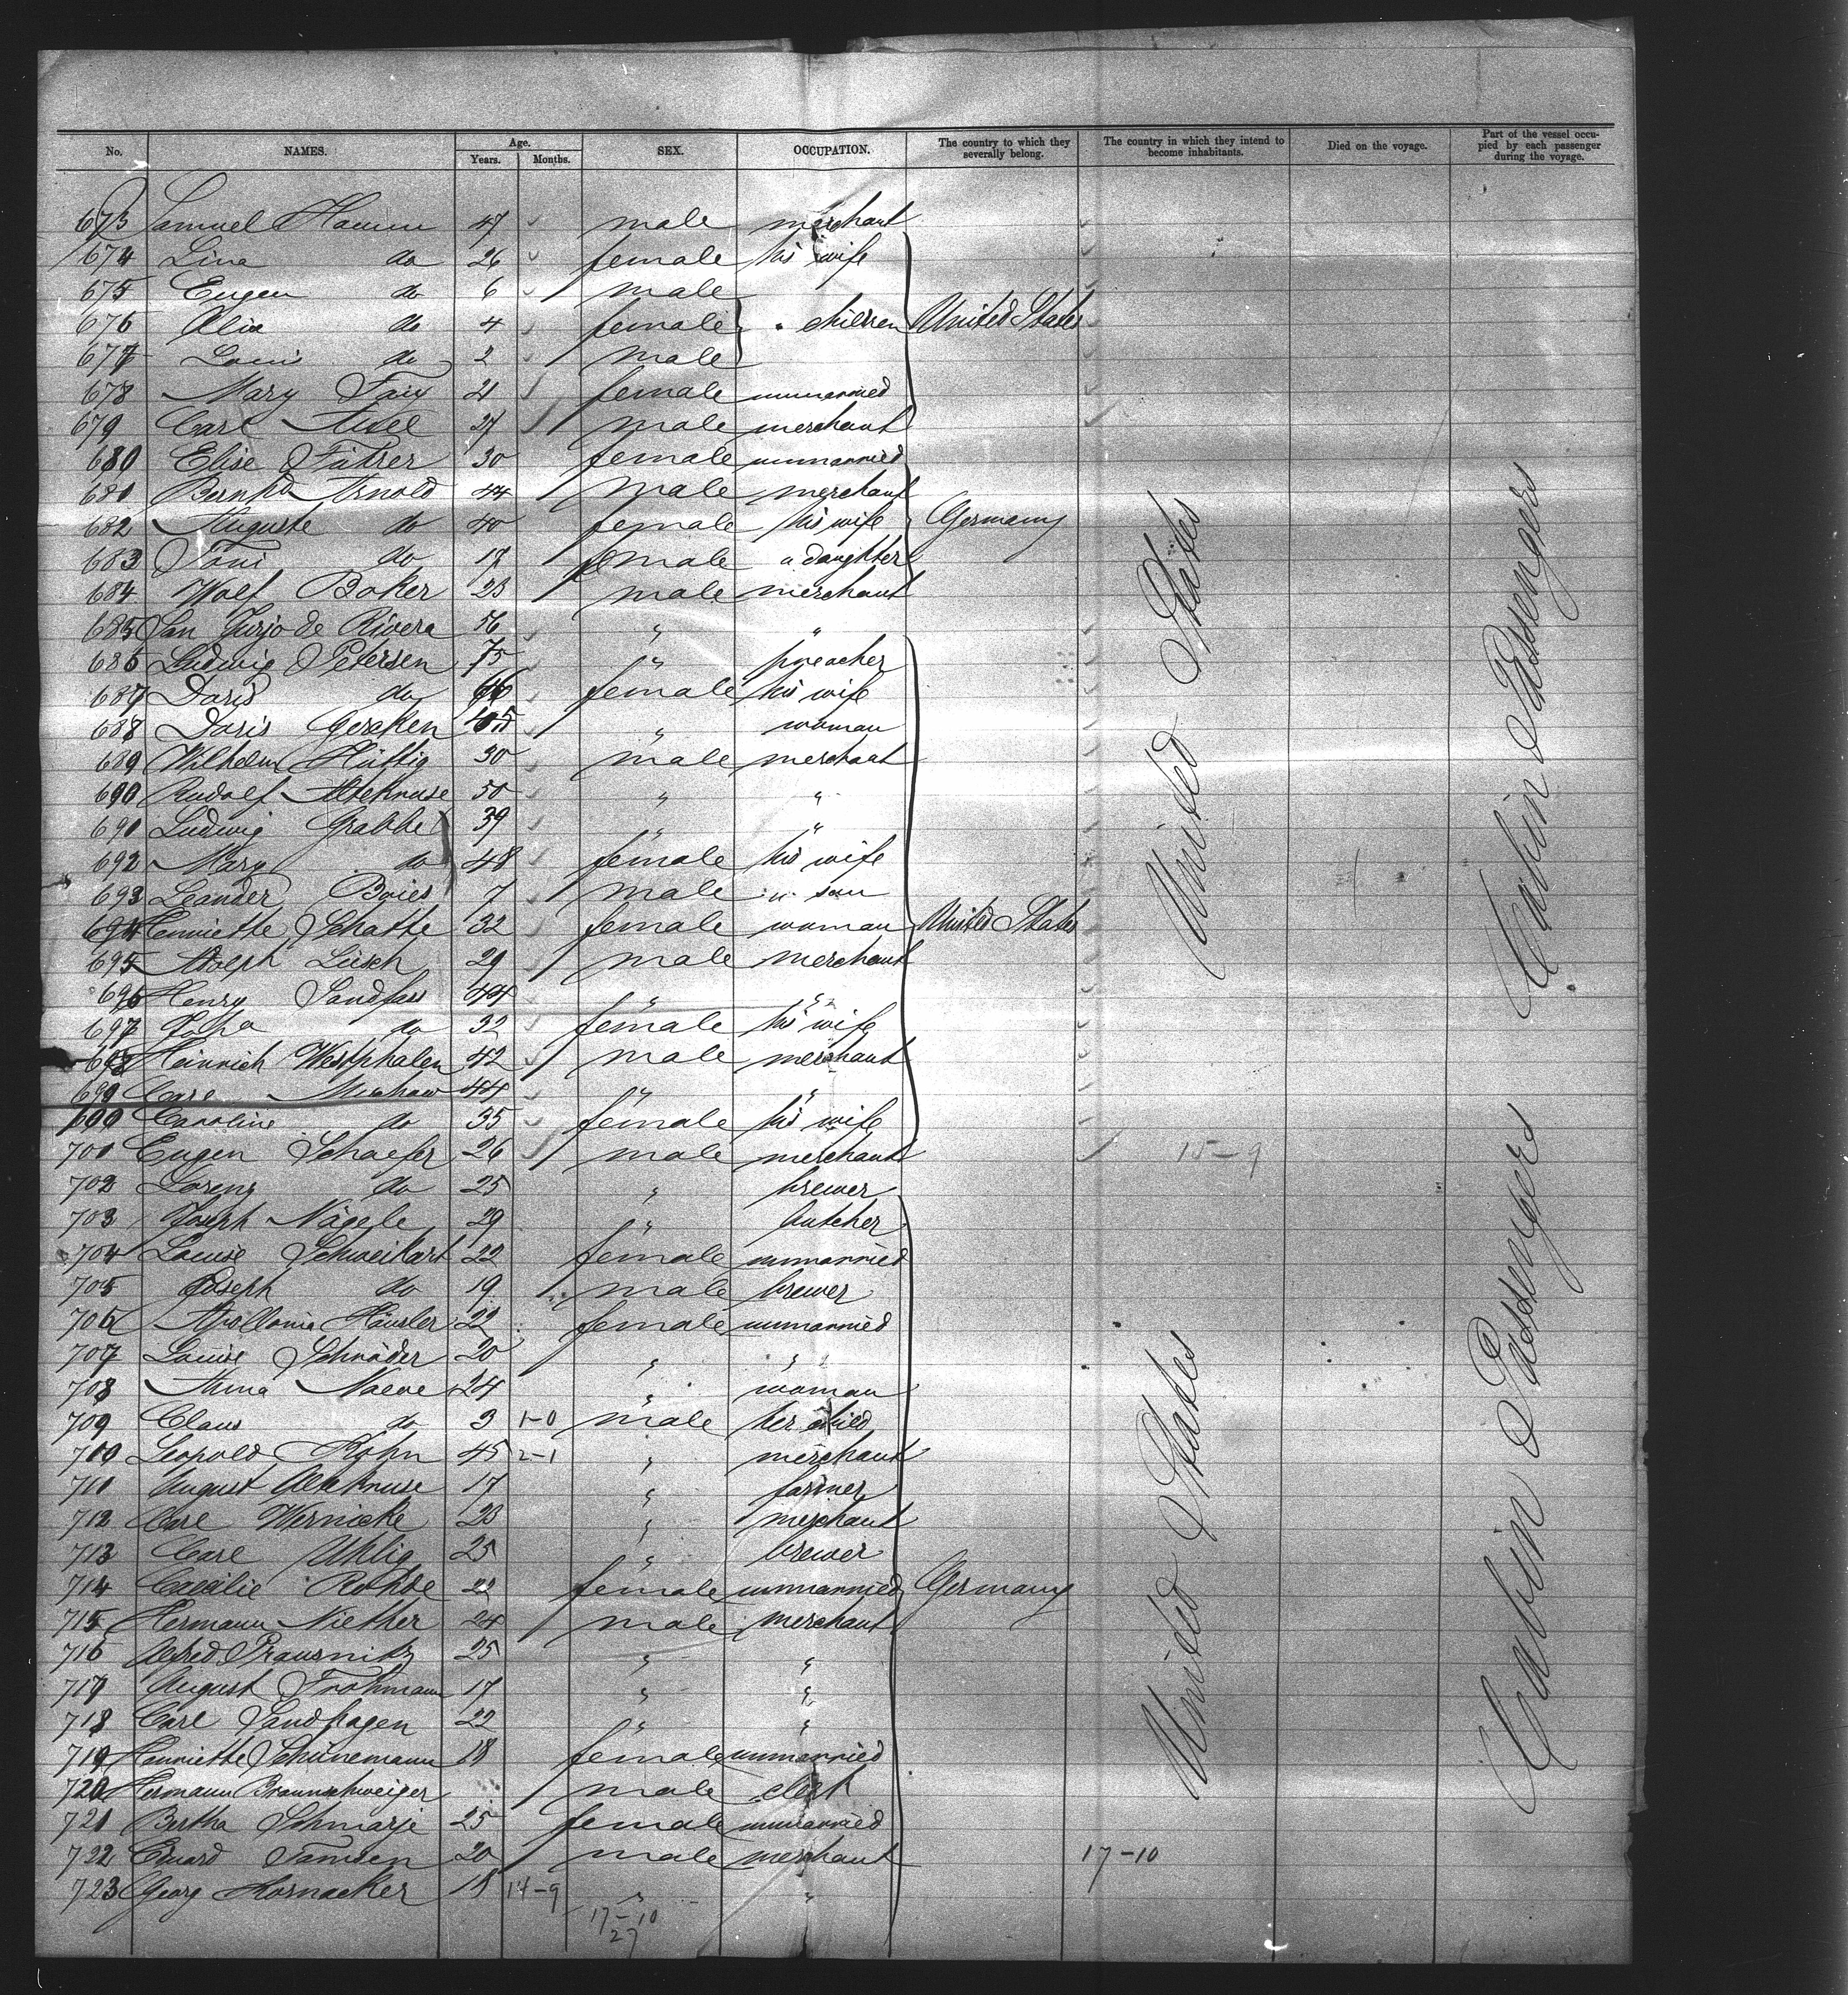 No. NAMES. Age. Years. Months. SEX. OCCUPATION. The country to which they severally belong. The country in which they intend to become inhabitants. Died on the voyage. Part of the vessel occupied by each passenger during the voyage.
673 Samuel Hamm 47 male merchant
674 Lina do 26 female his wife
675 Eugen do 6 male
676 do 4 female " children United States
677 Louis do 2 male
678 Mary 21 female unmarried
679 Carl 27 male merchant
680 Elise 30 female unmarried
681 Bernhd Arnold 44 male merchant
682 Auguste do 40 female his wife Germany
683 Toni do 17 female " daughter
684 Wolf Baker 23 male merchant
685 San Jurjo de Rivera 56 " "
686 Ludwig Petersen 75 " preacher
687 Doris do female his wife
688 Doris Gerken " woman
689 Wilhelm Hüttig 30 male merchant
690 Rudolf Altekruse 50 " "
691 Ludwig Grabbe 39 " "
692 Mary do 48 female his wife
693 Leander Boies 7 male " son
694 Henriette Schatte 32 female woman United States
695 Adolph Lüsch 29 male merchant
696 Henry Sandfass 44 " "
697 do 32 female his wife
698 Heinrich Westphalen 42 male merchant
699 Carl 44 " "
Caroline do 35 female his wife
700 Eugen Schaefer 26 male merchant 15-9
702 Lorenz do 25 " brewer
703 Joseph Nägele 29 " butcher
704 Louise Schweikart 22 female unmarried
705 Joseph do 19 male brewer
706 Apollonia Häusler 22 female unmarried
707 Louise Schröder 20 " "
708 Anna Naeve 24 " woman
709 Claus do 3 1-0 male her child
710 Leopold Kohn 45 2-1 " merchant
711 August Altekruse 17 " farmer
712 Carl Wernicke 23 " merchant
713 Carl Uhlig 25 " brewer
714 Caecilie Rohde 22 female unmarried Germany
715 Hermann Niether 24 male merchant
716 Alfred Prausnitz 25 " "
717 August Frohmann 17 " "
718 Carl Sandhagen 22 " "
719 Henriette Schünemann 18 female unmarried
720 Hermann Braunschweiger male clerk
721 Bertha Schmarje 25 female unmarried
722 Eduard Tamsen 20 male merchant 17-10
723 Georg Hornacker 18 14-9 " "
17-10
27
United States
Cabin Passengers
United States
Cabin Passengers